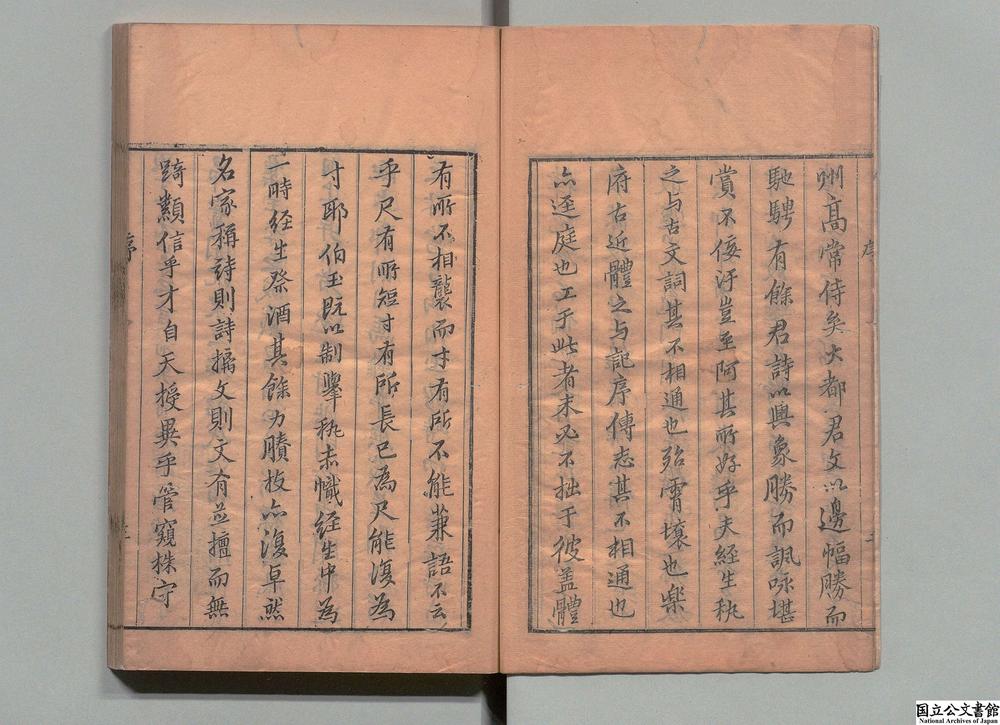 州髙常侍矣大都君文以邊幅勝而
馳騁有餘君詩以興象勝而諷咏堪
賞不佞汙豈至阿其所好乎夫經生
之与古文詞其不相通也殆霄壤也樂
府古近體之与記序傳志其不相通也
亦逕庭也工于此者未必不拙于彼盖體
有所不相襲而才有所不能兼語不云
乎尺有所短寸有所長已為尺能復為
寸耶伯玉既以制舉執赤幟经生中為
一時经生祭酒其餘力賸技亦復卓然
名家稱詩則詩摛文則文有並擅而無
踦纇信乎才自天授異乎管窺株守
序
序
国立公文書館
National Archives of Japan